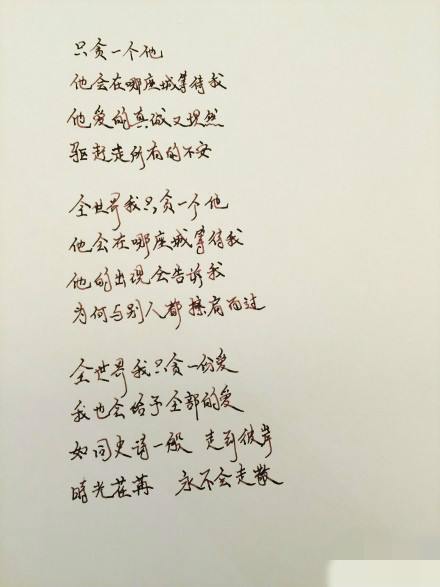 只贪一个他
他会在哪座城等待我
他爱的真诚又坦然
驱赶走所有的不安
全世界我只贪一个他
他会在哪座城等待我
他的出现会告诉我
为何与别人都擦肩而过
全世界我只贪一份爱
我也会给予全部的爱
如同史诗一般 走到彼岸
時光荏苒 永不会走散